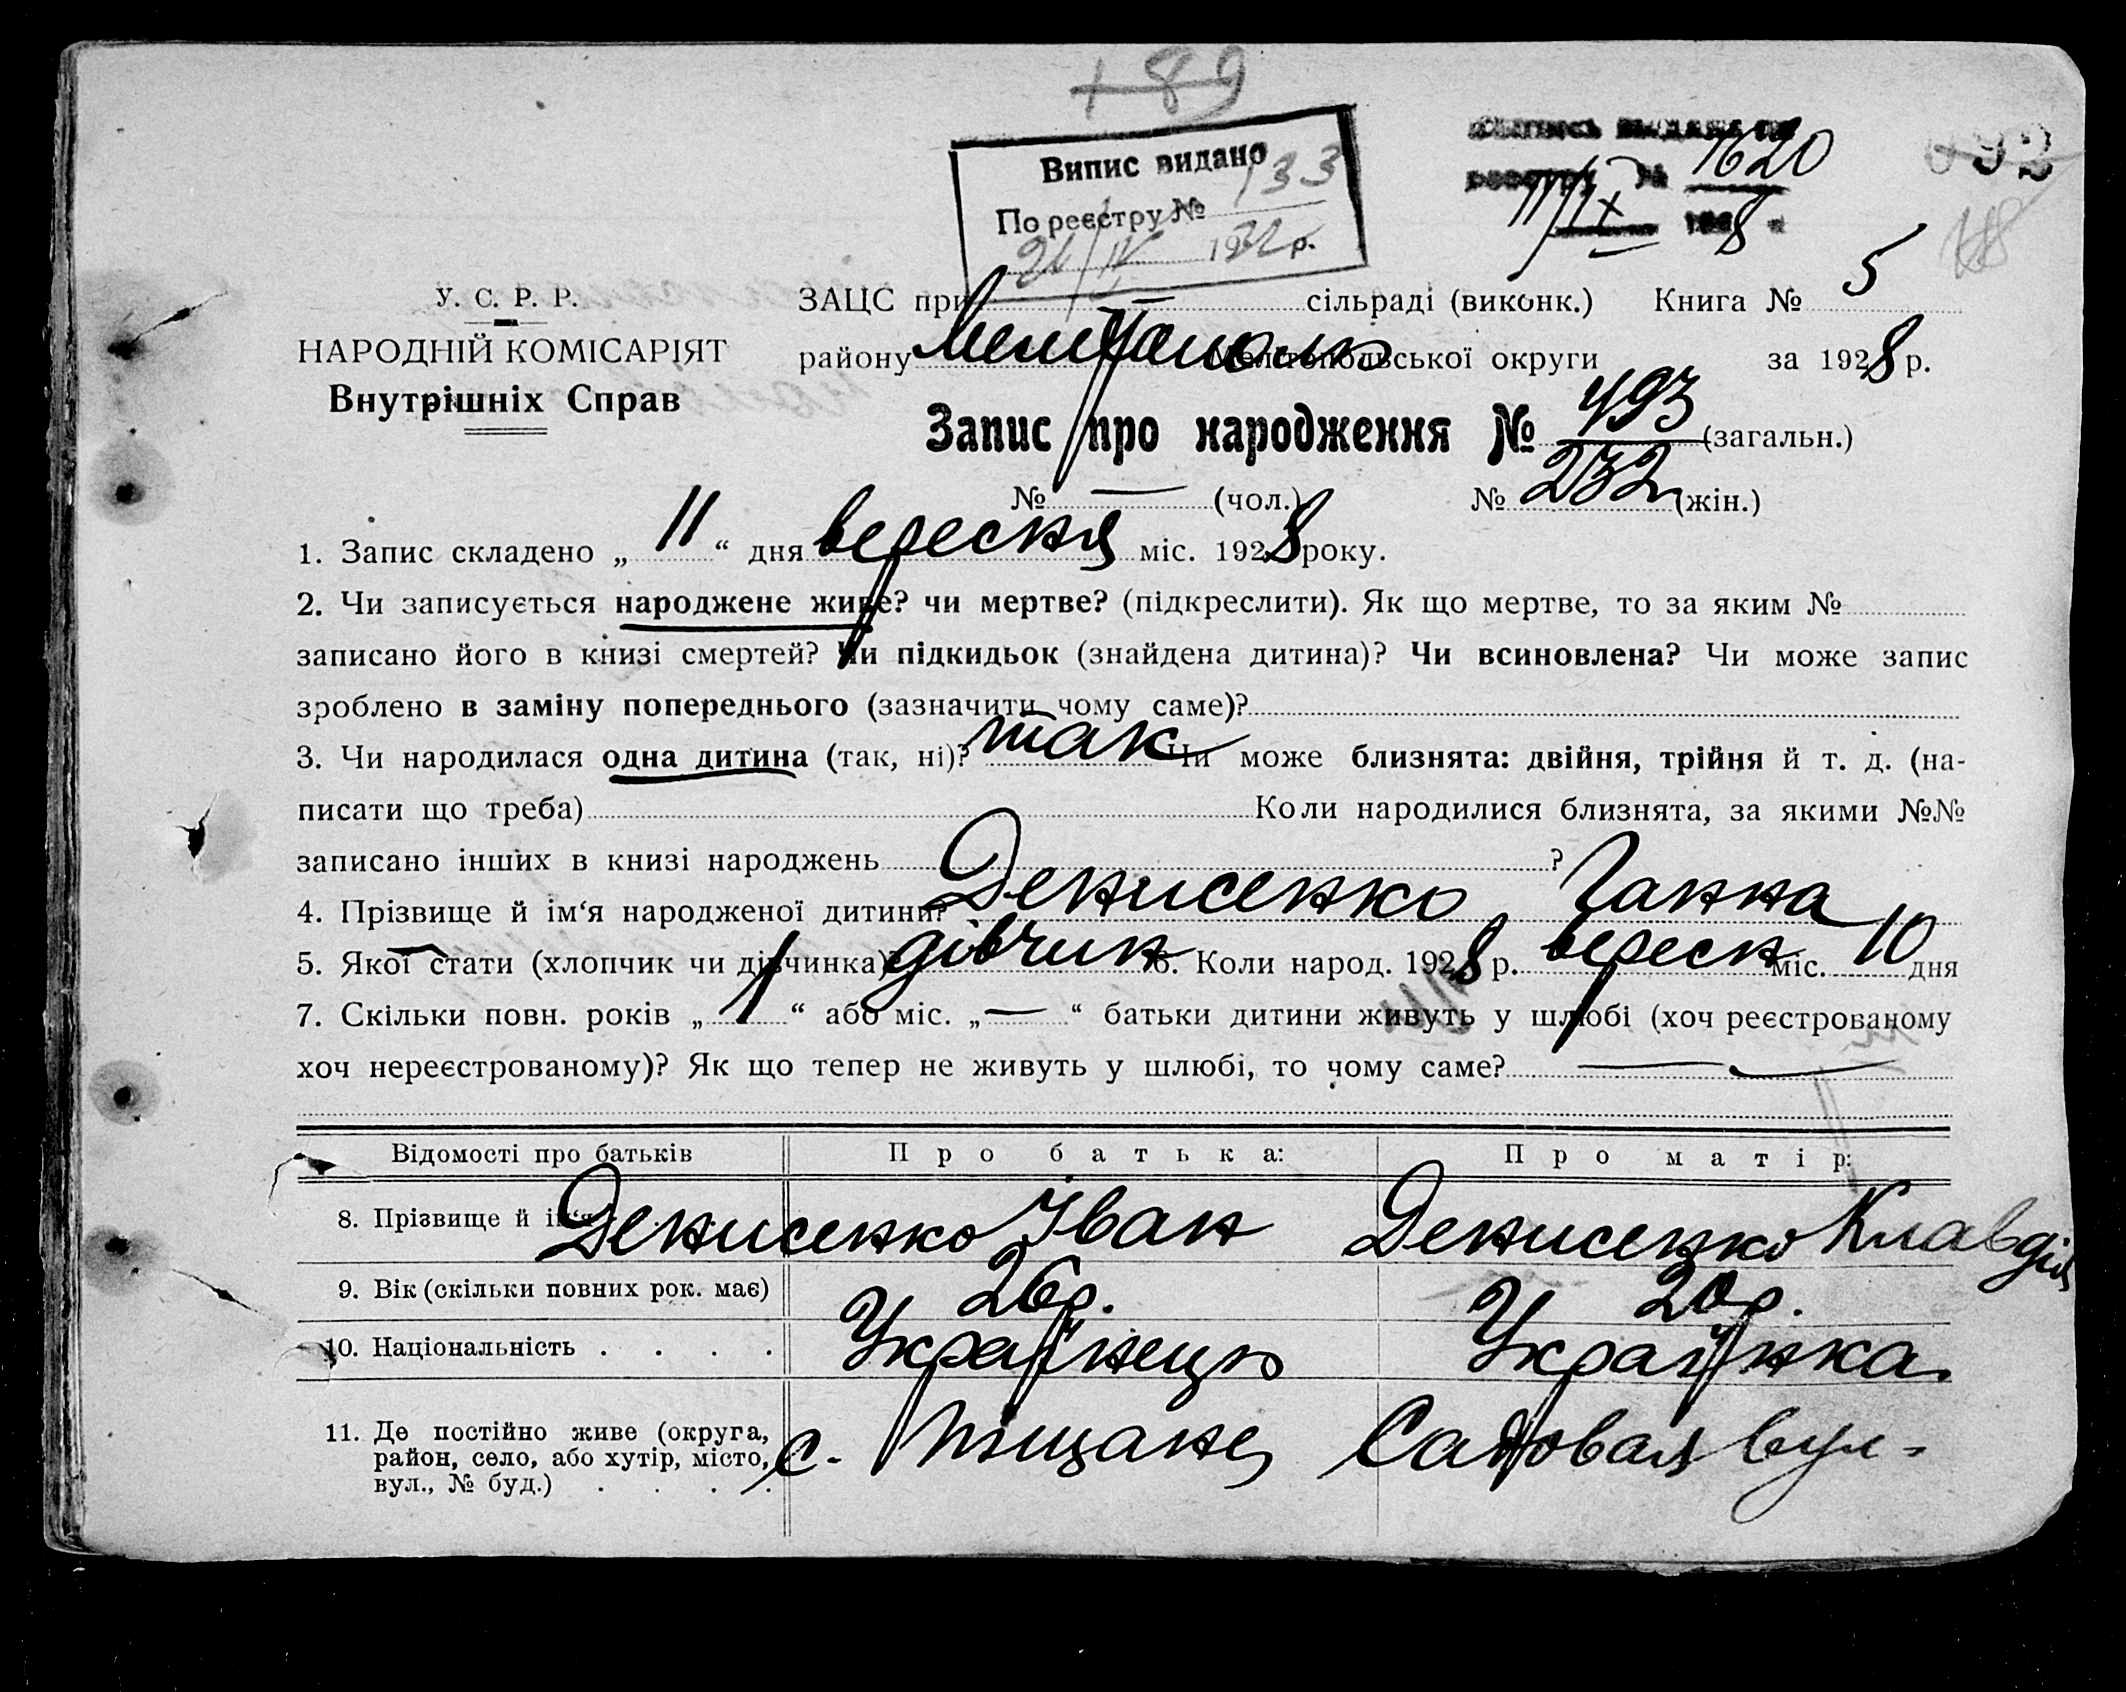 + 89
Випис видано
По реєстру № 133
21/IV 1932 р.
1620
11/IX 1928
У. С. Р. Р.
НАРОДНІЙ КОМІСАРІЯТ
Внутрішніх Справ
ЗАЦС при — сільраді (виконк.) Книга № 5
району Мелітополь Мелітопольської округи за 1928 р.
Запис про народження № 493 (загальн.)
№ — (чол.) № 232 (жін.)
1. Запис складено „ 11 “ дня вересня міс. 1928 року.
2. Чи записується народжене живе? чи мертве? (підкреслити). Як що мертве, то за яким №
записано його в книзі смертей? Чи підкидьок (знайдена дитина)? Чи всиновлена? Чи може запис
зроблено в заміну попереднього (зазначити чому саме)?
3. Чи народилася одна дитина (так, ні)? так Чи може близнята: двійня, трійня й т. д. (на-
писати що треба) Коли народилися близнята, за якими №№
записано інших в книзі народжень ?
4. Прізвище й ім‘я народженої дитини? Денисенко Ганна
5. Якої стати (хлопчик чи дівчинка) дівчин 6. Коли народ. 1928 р. вересн міс. 10 дня
7. Скільки повн. років „ 1 “ або міс. „ — “ батьки дитини живуть у шлюбі (хоч реєстрованому
хоч нереєстрованому)? Як що тепер не живуть у шлюбі, то чому саме? —
Відомості про батьків Про батька: Про матір:
8. Прізвище й ім‘я Денисенко Іван Денисенко Клавдія
9. Вік (скільки повних рок. має) 26 р. 20 р.
10. Національність . . . . Українець Українка
11. Де постійно живе (округа,
район, село, або хутір, місто, с. Піщане Садовая вул.
вул., № буд.) . . . .